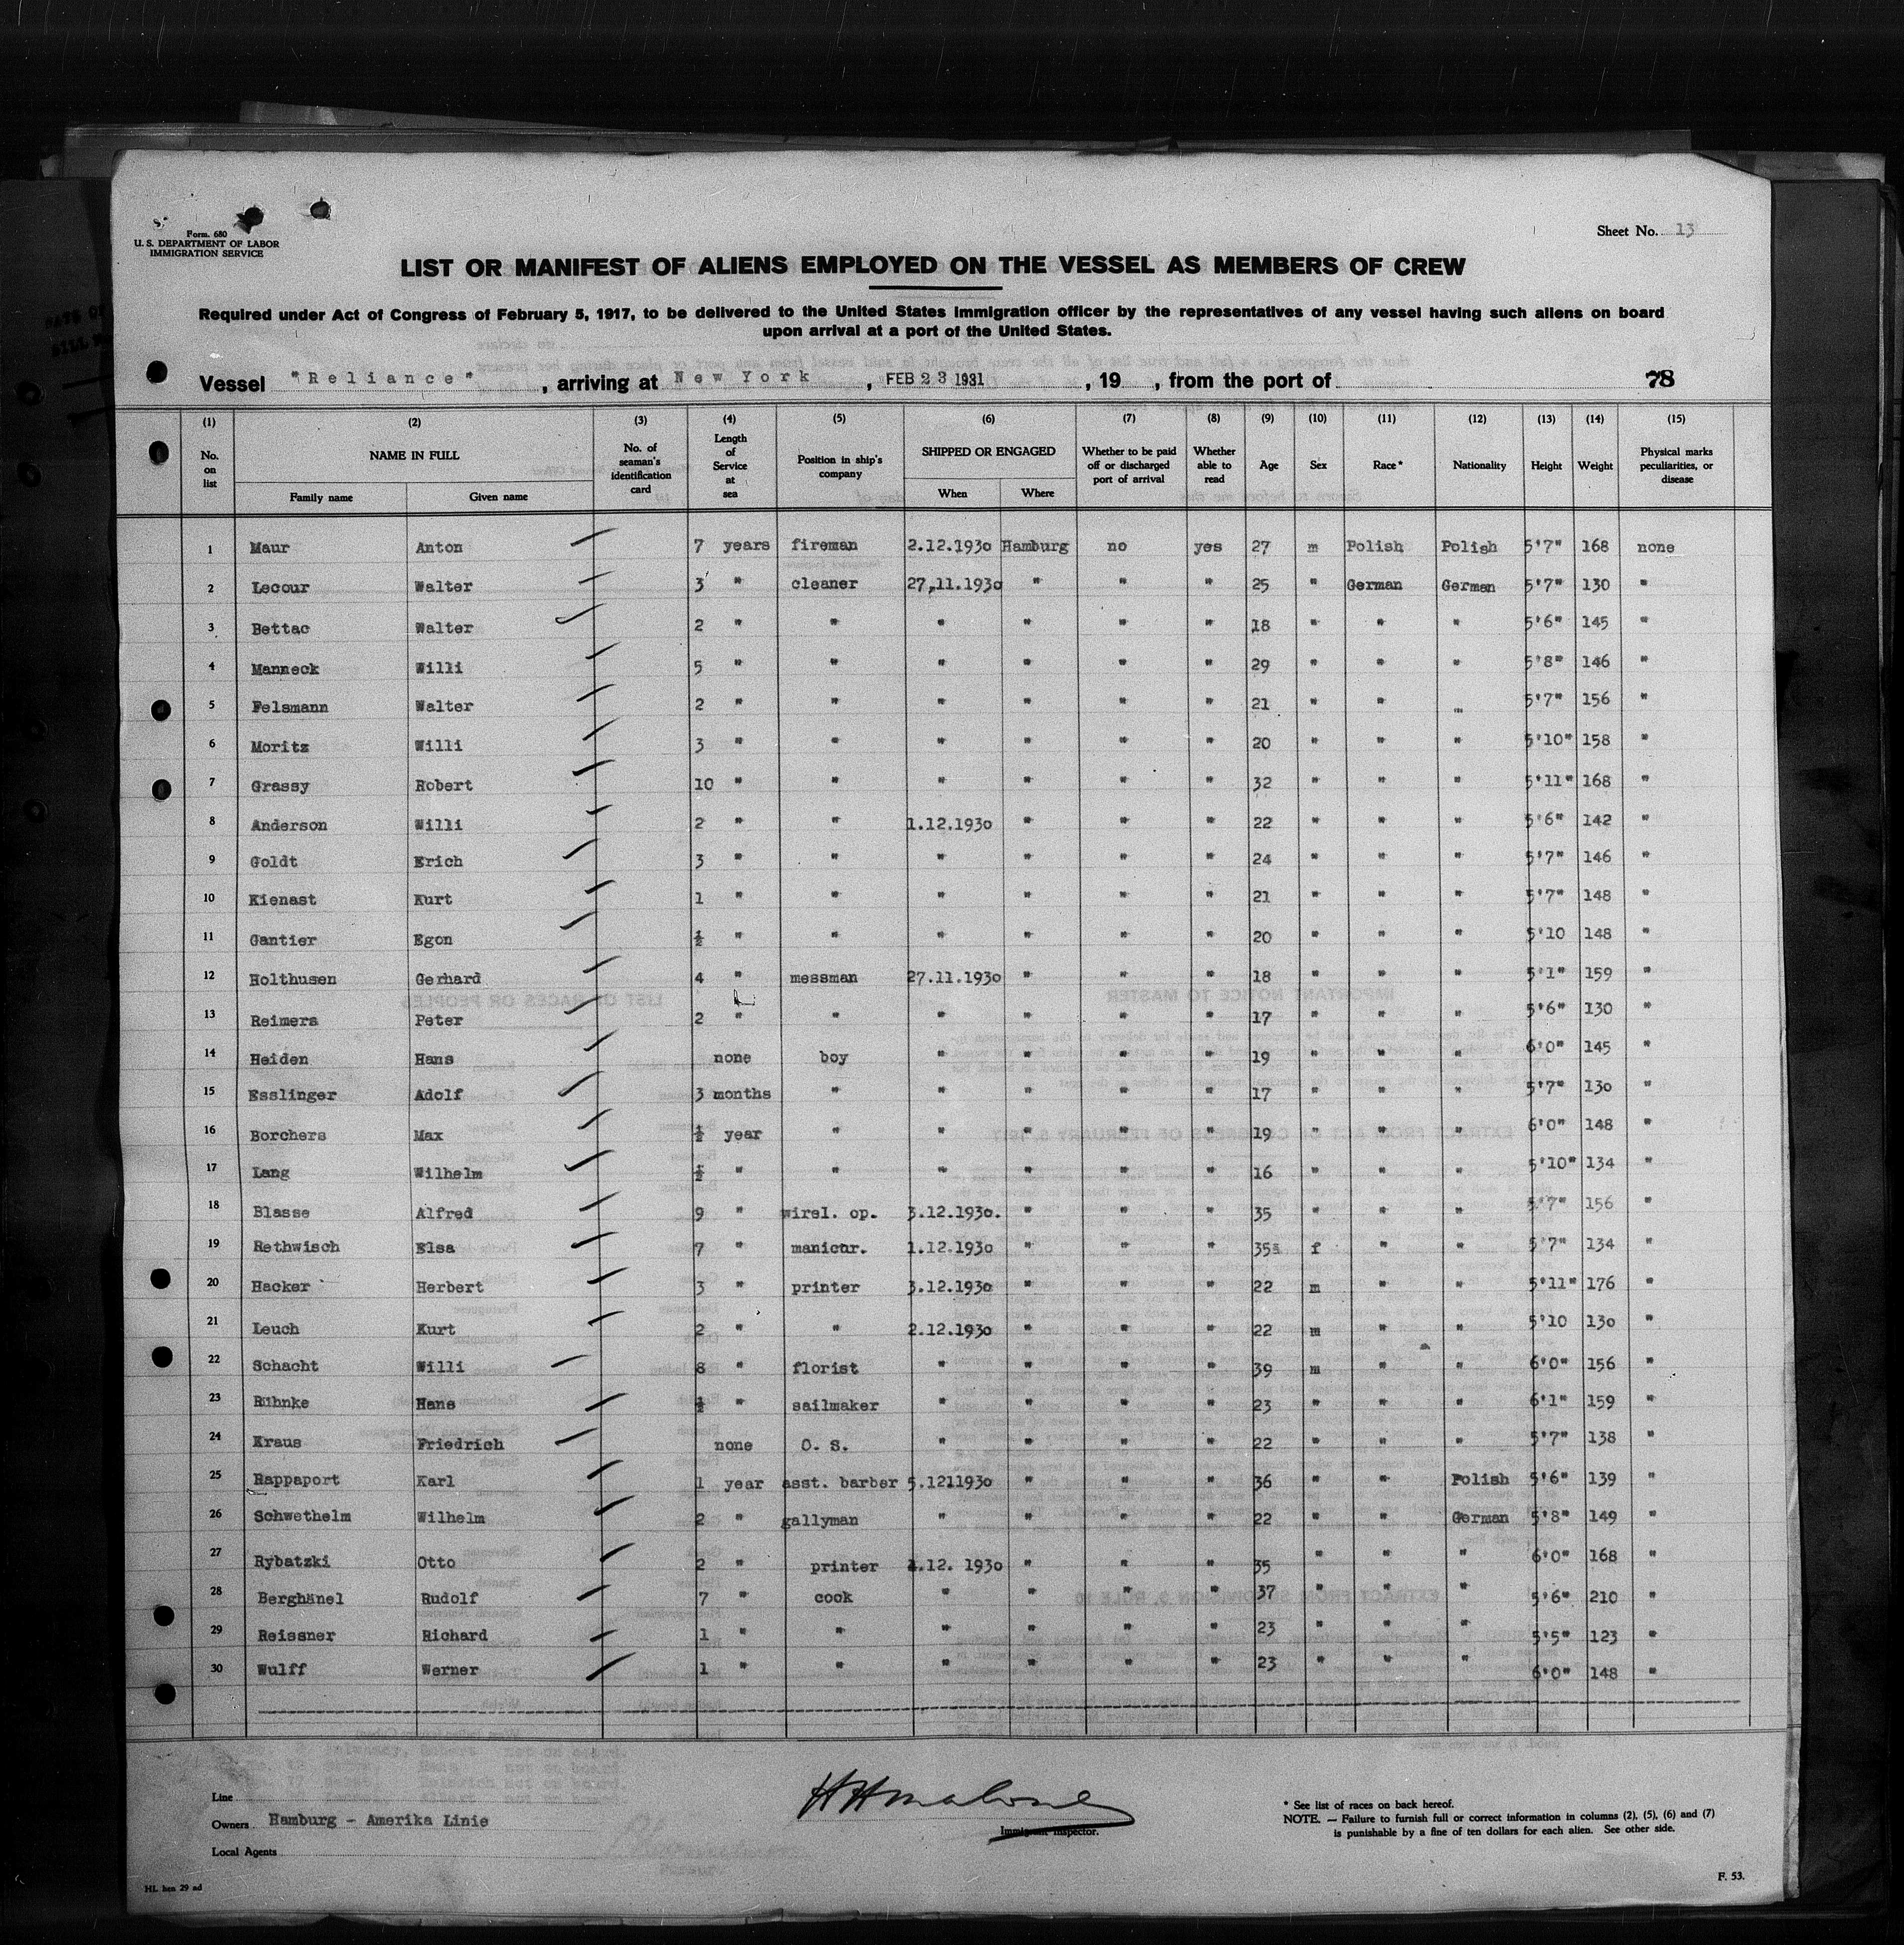 Form. 680
U. S. DEPARTMENT OF LABOR
IMMIGRATION SERVICE
Sheet No. 13
LIST OR MANIFEST OF ALIENS EMPLOYED ON THE VESSEL AS MEMBERS OF CREW
Required under Act of Congress of February 5, 1917, to be delivered to the United States Immigration officer by the representatives of any vessel having such aliens on board
upon arrival at a port of the United States.
Vessel "Reliance", arriving at New York, FEB 23 1931, 19 , from the port of 78
(1) No. on list (2) NAME IN FULL Family name Given name (3) No. of seaman's identification card (4) Length of Service at sea (5) Position in ship's company (6) SHIPPED OR ENGAGED When Where (7) Whether to be paid off or discharged port of arrival (8) Whether able to read (9) Age (10) Sex (11) Race* (12) Nationality (13) Height (14) Weight (15) Physical marks peculiarities, or disease
1 Maur Anton 7 years fireman 2.12.1930 Hamburg no yes 27 m Polish Polish 5'7" 168 none
2 Lecour Walter 3 " cleaner 27.11.1930 " " " 25 " German German 5'7" 130 "
3 Bettac Walter 2 " " " " " " 18 " " " 5'6" 145 "
4 Manneck Willi 5 " " " " " " 29 " " " 5'8" 146 "
5 Felsmann Walter 2 " " " " " " 21 " " " 5'7" 156 "
6 Moritz Willi 3 " " " " " " 20 " " " 5'10" 158 "
7 Grassy Robert 10 " " " " " " 32 " " " 5'11" 168 "
8 Anderson Willi 2 " " 1.12.1930 " " " 22 " " " 5'6" 142 "
9 Goldt Erich 3 " " " " " " 24 " " " 5'7" 146 "
10 Kienast Kurt 1 " " " " " " 21 " " " 5'7" 148 "
11 Gantier Egon ½ " " " " " " 20 " " " 5'10 148 "
12 Holthusen Gerhard 4 " messman 27.11.1930 " " " 18 " " " 5'1" 159 "
13 Reimers Peter 2 " " " " " " 17 " " " 5'6" 130 "
14 Heiden Hans none boy " " " " 19 " " " 6'0" 145 "
15 Esslinger Adolf 3 months " " " " " 17 " " " 5'7" 130 "
16 Borchers Max ½ year " " " " " 19 " " " 6'0" 148 "
17 Lang Wilhelm ½ " " " " " " 16 " " " 5'10" 134 "
18 Blasse Alfred 9 " wirel. op. 3.12.1930. " " " 35 " " " 5'7" 156 "
19 Rethwisch Elsa 7 " manicur. 1.12.1930 " " " 35 f " " 5'7" 134 "
20 Hacker Herbert 3 " printer 3.12.1930 " " " 22 m " " 5'11" 176 "
21 Leuch Kurt 2 " " 2.12.1930 " " " 22 m " " 5'10 130 "
22 Schacht Willi 8 " florist " " " " 39 m " " 6'0" 156 "
23 Rühnke Hans ½ " sailmaker " " " " 23 " " " 6'1" 159 "
24 Kraus Friedrich none O. S. " " " " 22 " " " 5'7" 138 "
25 Rappaport Karl 1 year asst. barber 5.1211930 " " " 36 " " Polish 5'6" 139 "
26 Schwethelm Wilhelm 2 " gallyman " " " " 22 " " German 5'8" 149 "
27 Rybatzki Otto 2 " printer 4.12. 1930 " " " 35 " " " 6'0" 168 "
28 Berghänel Rudolf 7 " cook " " " " 37 " " " 5'6" 210 "
29 Reissner Richard 1 " " " " " " 23 " " " 5'5" 123 "
30 Wulff Werner 1 " " " " " " 23 " " " 6'0" 148 "
Line
Owners Hamburg - Amerika Linie
Local Agents
HHMalone
Immigrant Inspector.
* See list of races on back hereof.
NOTE. — Failure to furnish full or correct information in columns (2), (5), (6) and (7)
is punishable by a fine of ten dollars for each alien. See other side.
HL hen 29 ad
F. 53.